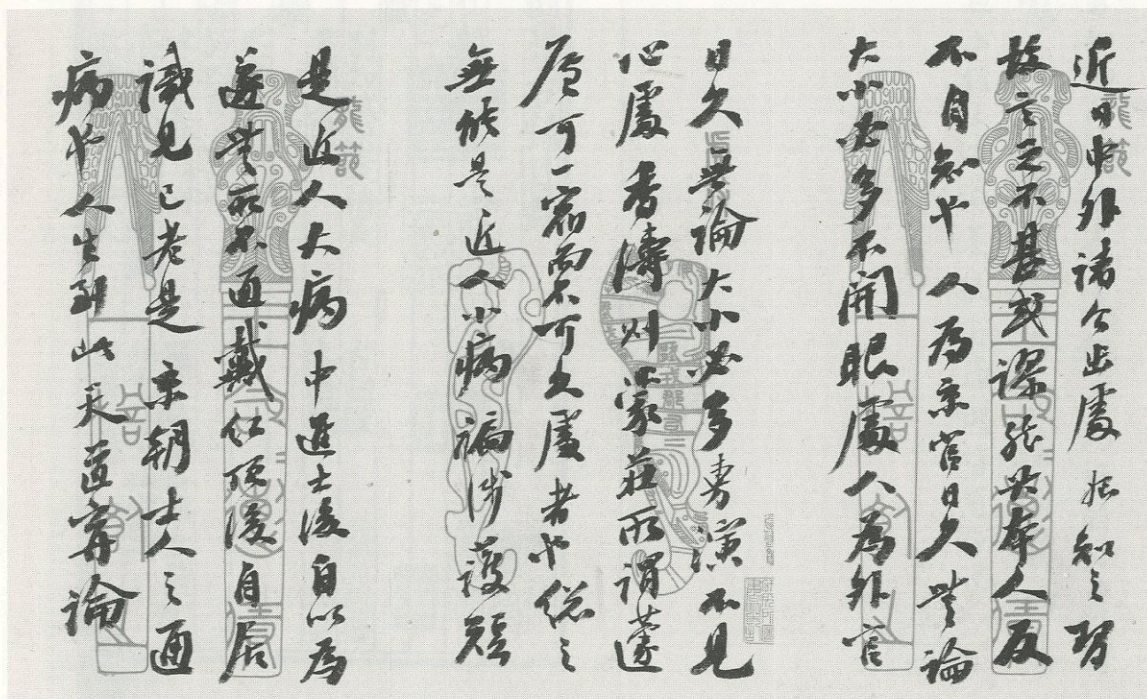 近日中外諸公出處知之習
故言之不甚謬然其本人反
不自知也人為京官日久無論
大小必多不開眼處人為外官
日久無論大小必多不見
心處香濤則蒙莊所謂蘧
廬可一宿而不可久處者也總之
無能是近人小病褊護短
是近人大病中進士後自以為
遂無所不通戴紅頂後自居
識見已老是京朝士人之通
病也人生到此天道寧論
龍節
龍節